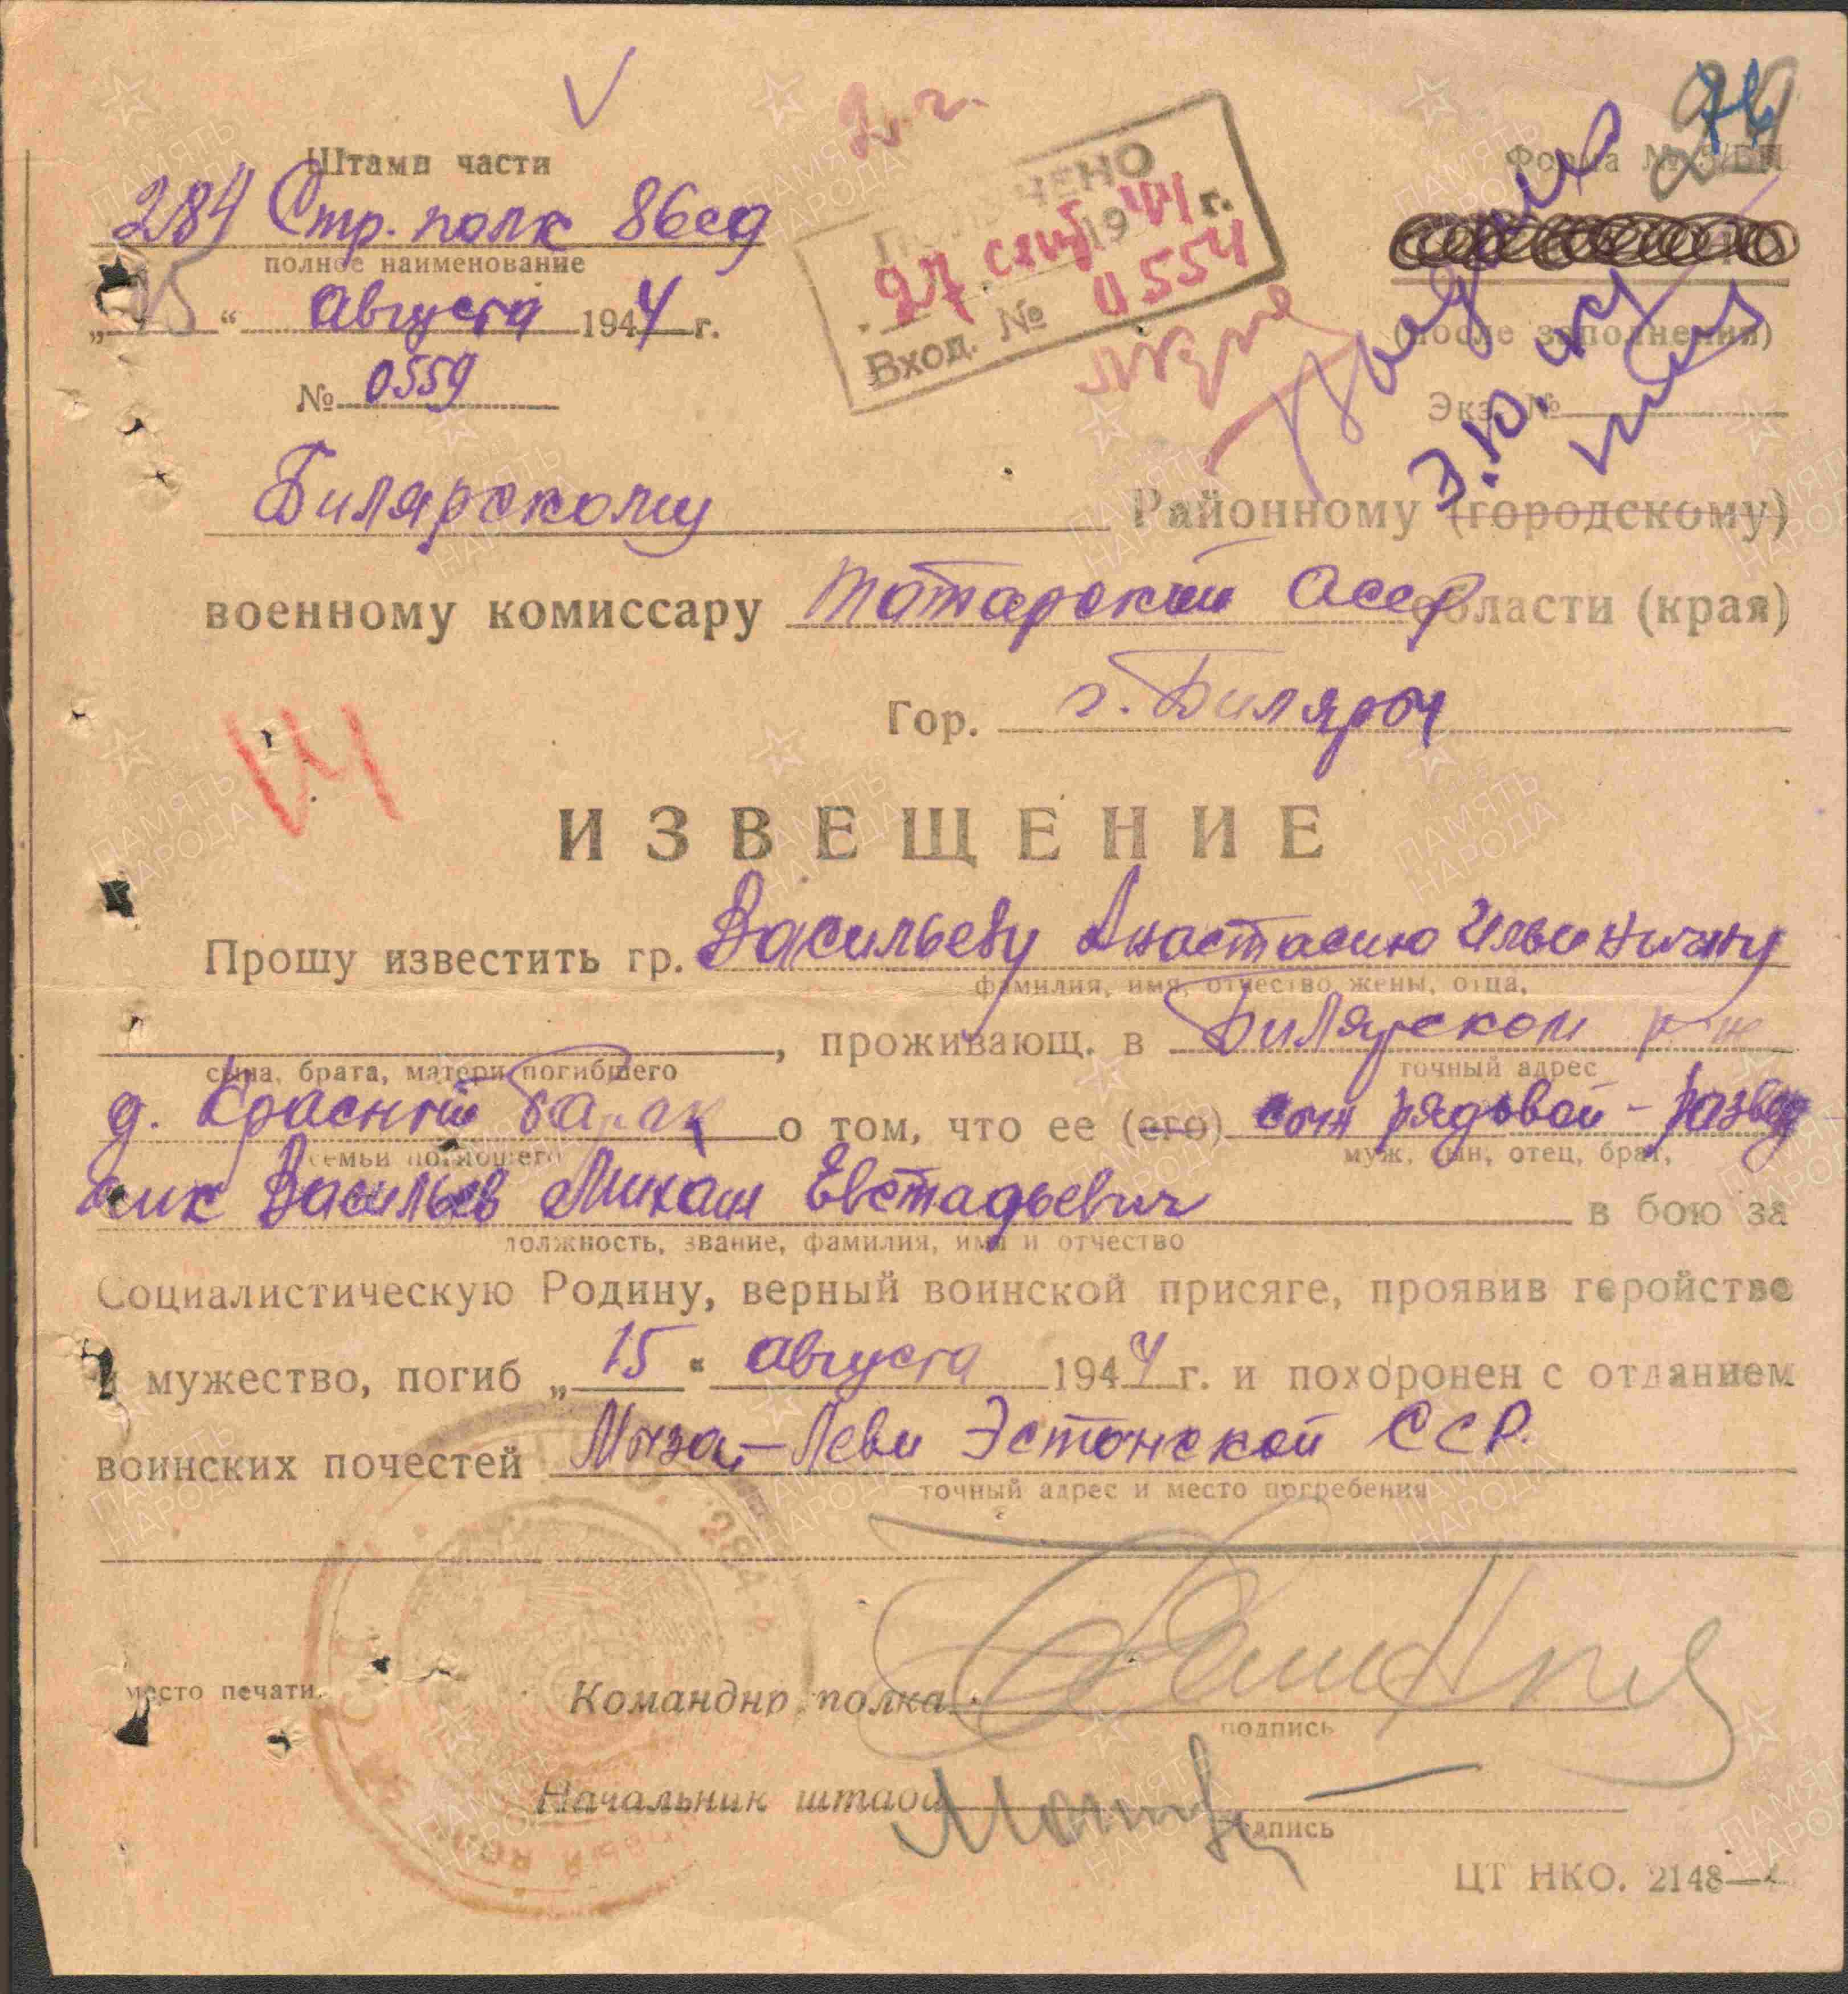 Штамп части
284 Стр. полк 86сд
полное наименование
" 15 " Августа 1944 г.
№ 0559
27 сент 1944 г.
Вход. № 0554
Форма №
(после заполнения)
Экз. №
Билярскому Районному (городскому)
военному комиссару Татарский Асср области (края)
Гор. г. Билярск
ИЗВЕЩЕНИЕ
Прошу известить гр. Васильеву Анастасию Ильиничну
фамилия, имя, отчество жены, отца,
, проживающ. в Билярском р-не
сына, брата, матери погибшего точный адрес
д. Красный Барак о том, что ее (его) сын рядовой - развед
семьи погибшего муж, сын, отец, брат,
чик Васильев Михаил Евстафьевич в бою за
должность, звание, фамилия, имя и отчество
Социалистическую Родину, верный воинской присяге, проявив геройство
и мужество, погиб „ 15 " августа 1944 г. и похоронен с отданием
воинских почестей Мыза-Леви Эстонской ССР.
точный адрес и место погребения
место печати.
Командир полка
подпись
Начальник штаба
подпись
ЦТ НКО. 2148—
ПАМЯТЬ НАРОДА